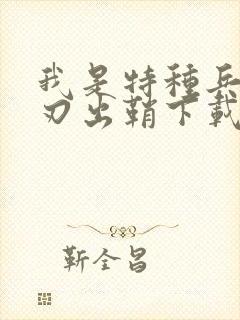 我是特種兵
刃出鞘下載
靳全昌